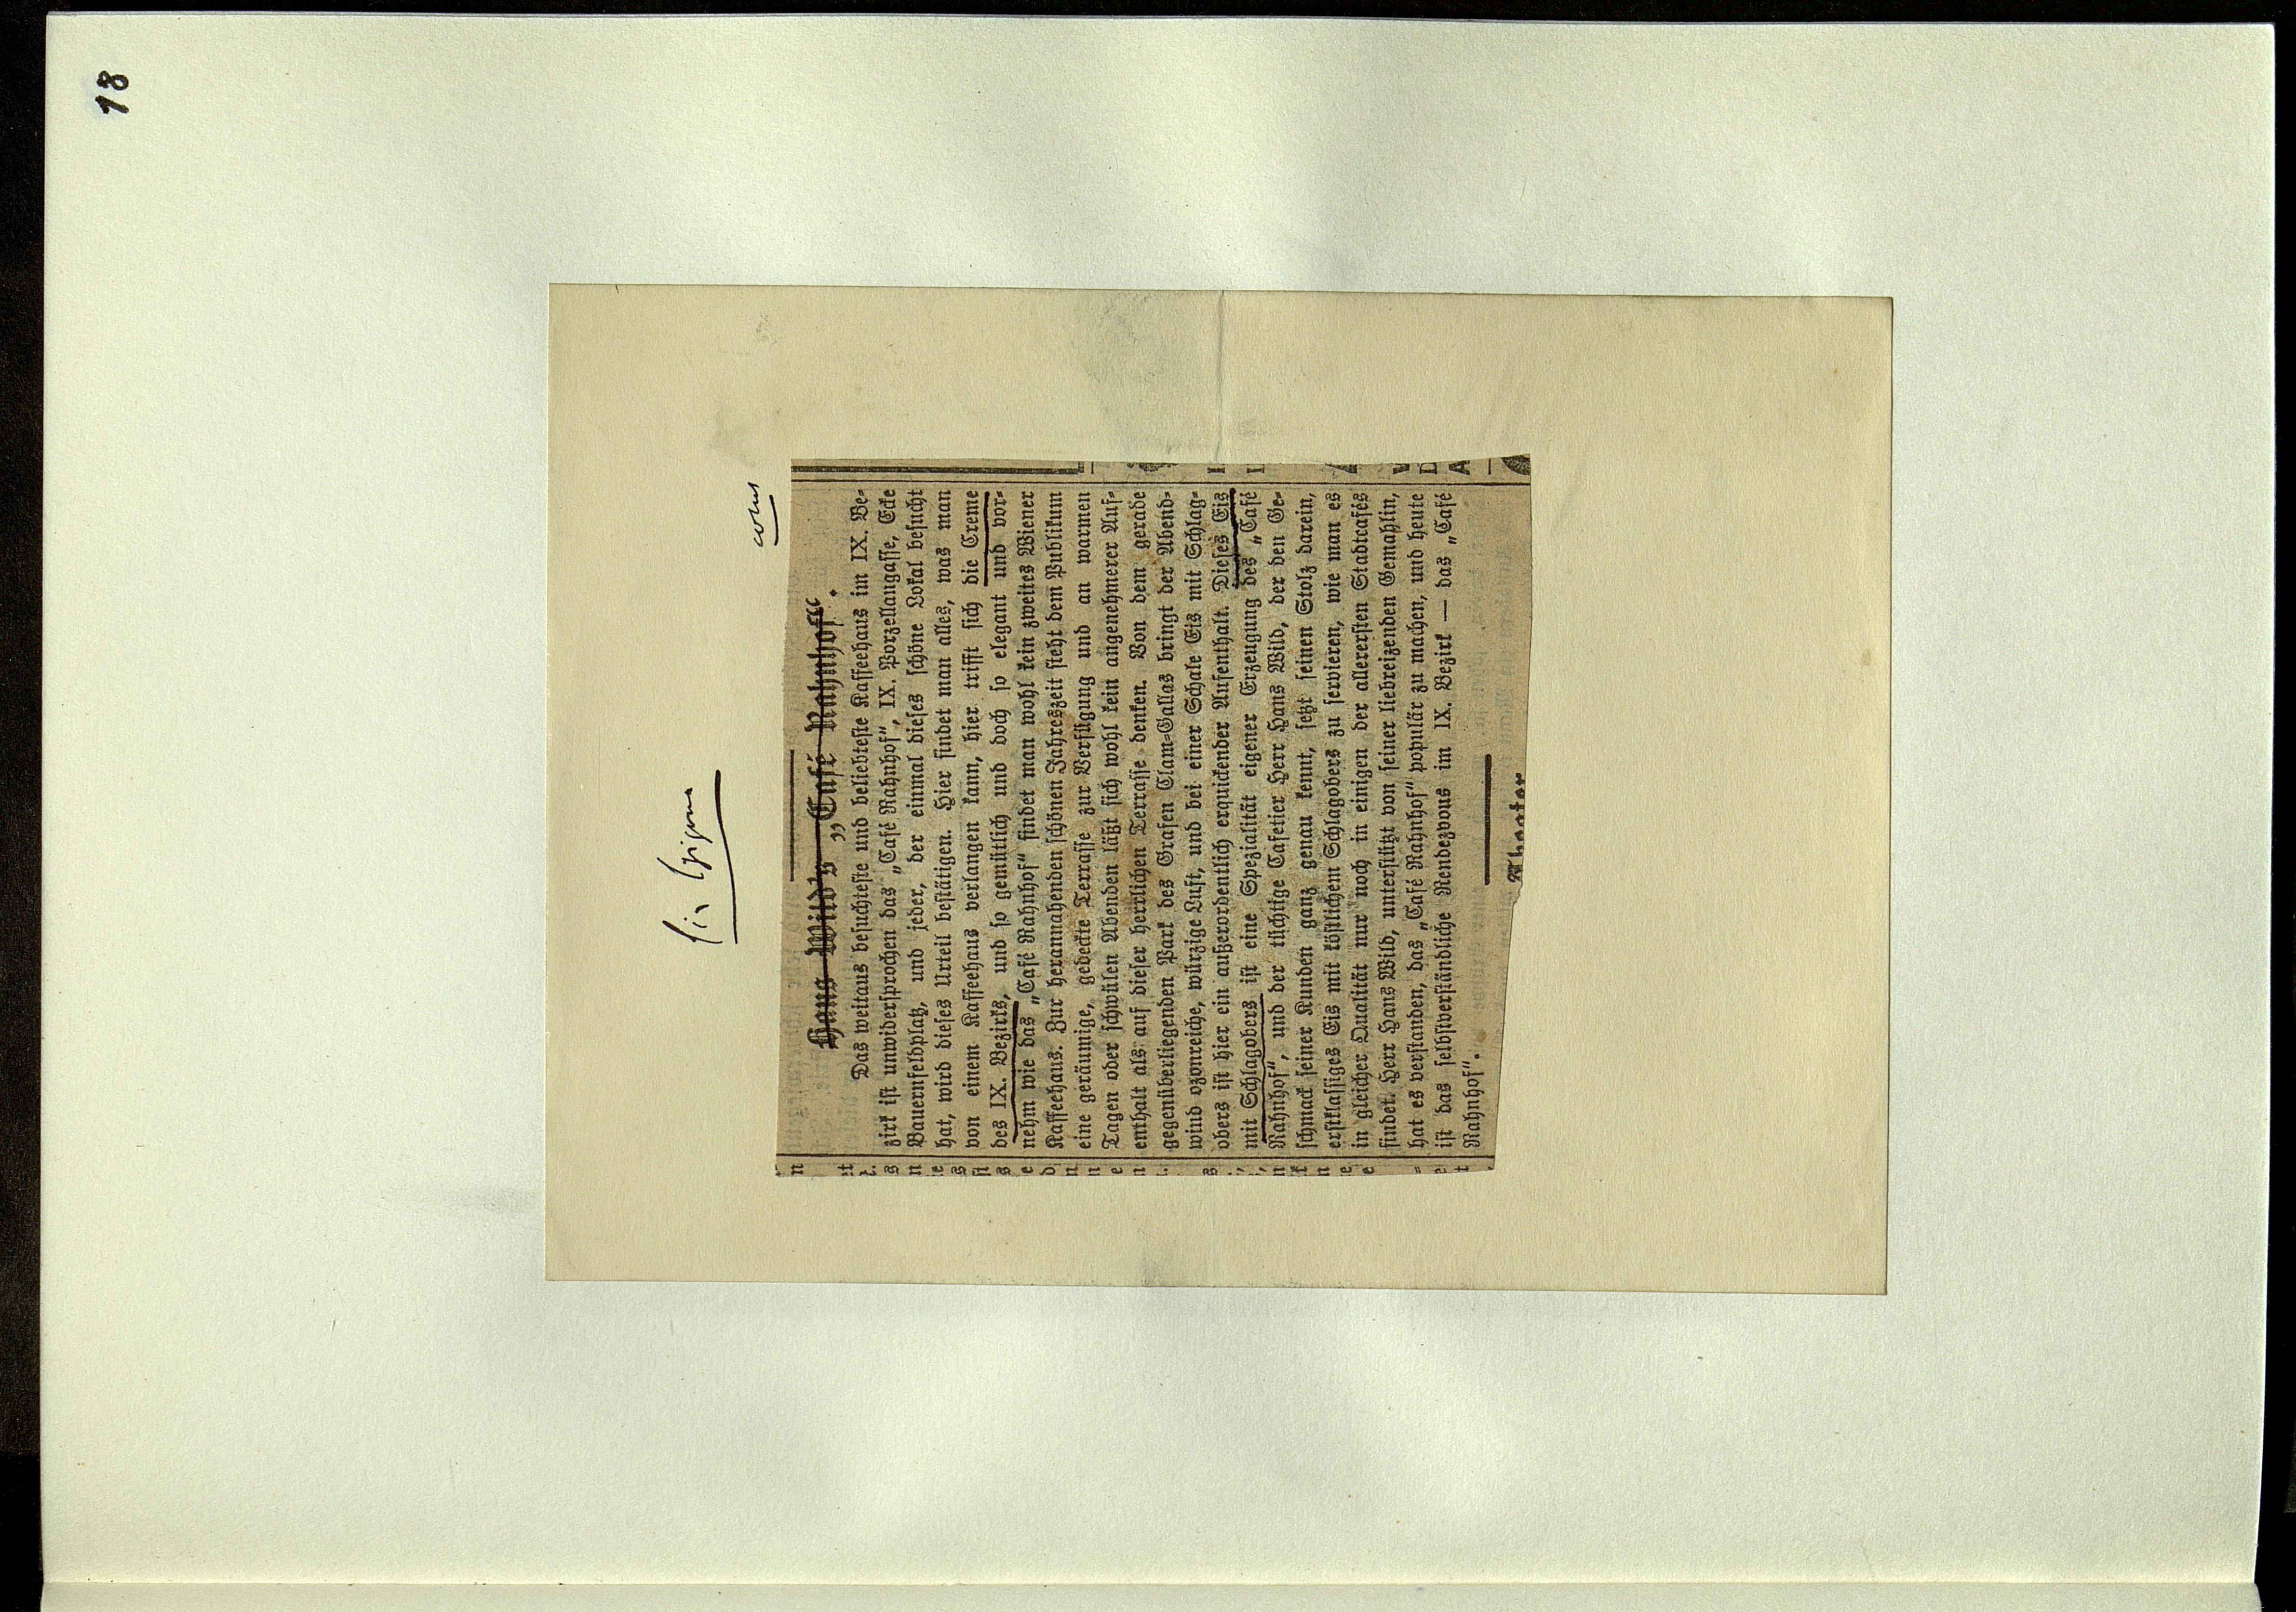 18
corpus
Hans Wild's „Café Rahnhof“.
Das weitaus besuchteste und beliebteste Kaffeehaus im IX. Be-
zirk ist unwidersprochen das „Café Rahnhof“, IX. Porzellangasse, Ecke
Bauernfeldplatz, und jeder, der einmal dieses schöne Lokal besucht
hat, wird dieses Urteil bestätigen. Hier findet man alles, was man
von einem Kaffeehaus verlangen kann, hier trifft sich die Creme
des IX. Bezirks, und so gemütlich und doch so elegant und vor-
nehm wie das „Café Rahnhof“ findet man wohl kein zweites Wiener
Kaffeehaus. Zur herannahenden schönen Jahreszeit steht dem Publikum
eine geräumige, gedeckte Terrasse zur Verfügung und an warmen
Tagen oder schwülen Abenden läßt sich wohl kein angenehmerer Auf-
enthalt als auf dieser herrlichen Terrasse denken. Von dem gerade
gegenüberliegenden Park des Grafen Clam-Gallas bringt der Abend-
wind ozonreiche, würzige Luft, und bei einer Schale Eis mit Schlag-
obers ist hier ein außerordentlich erquickender Aufenthalt. Dieses Eis
mit Schlagobers ist eine Spezialität eigener Erzeugung des „Café
Rahnhof“, und der tüchtige Cafetier Herr Hans Wild, der den Ge-
schmack seiner Kunden ganz genau kennt, setzt seinen Stolz darein,
erstklassiges Eis mit köstlichem Schlagobers zu servieren, wie man es
in gleicher Qualität nur noch in einigen der allerersten Stadtcafés
findet. Herr Hans Wild, unterstützt von seiner liebreizenden Gemahlin,
hat es verstanden, das „Café Rahnhof“ populär zu machen, und heute
ist das selbstverständliche Rendezvous im IX. Bezirk — das „Café
Rahnhof“.
Theater